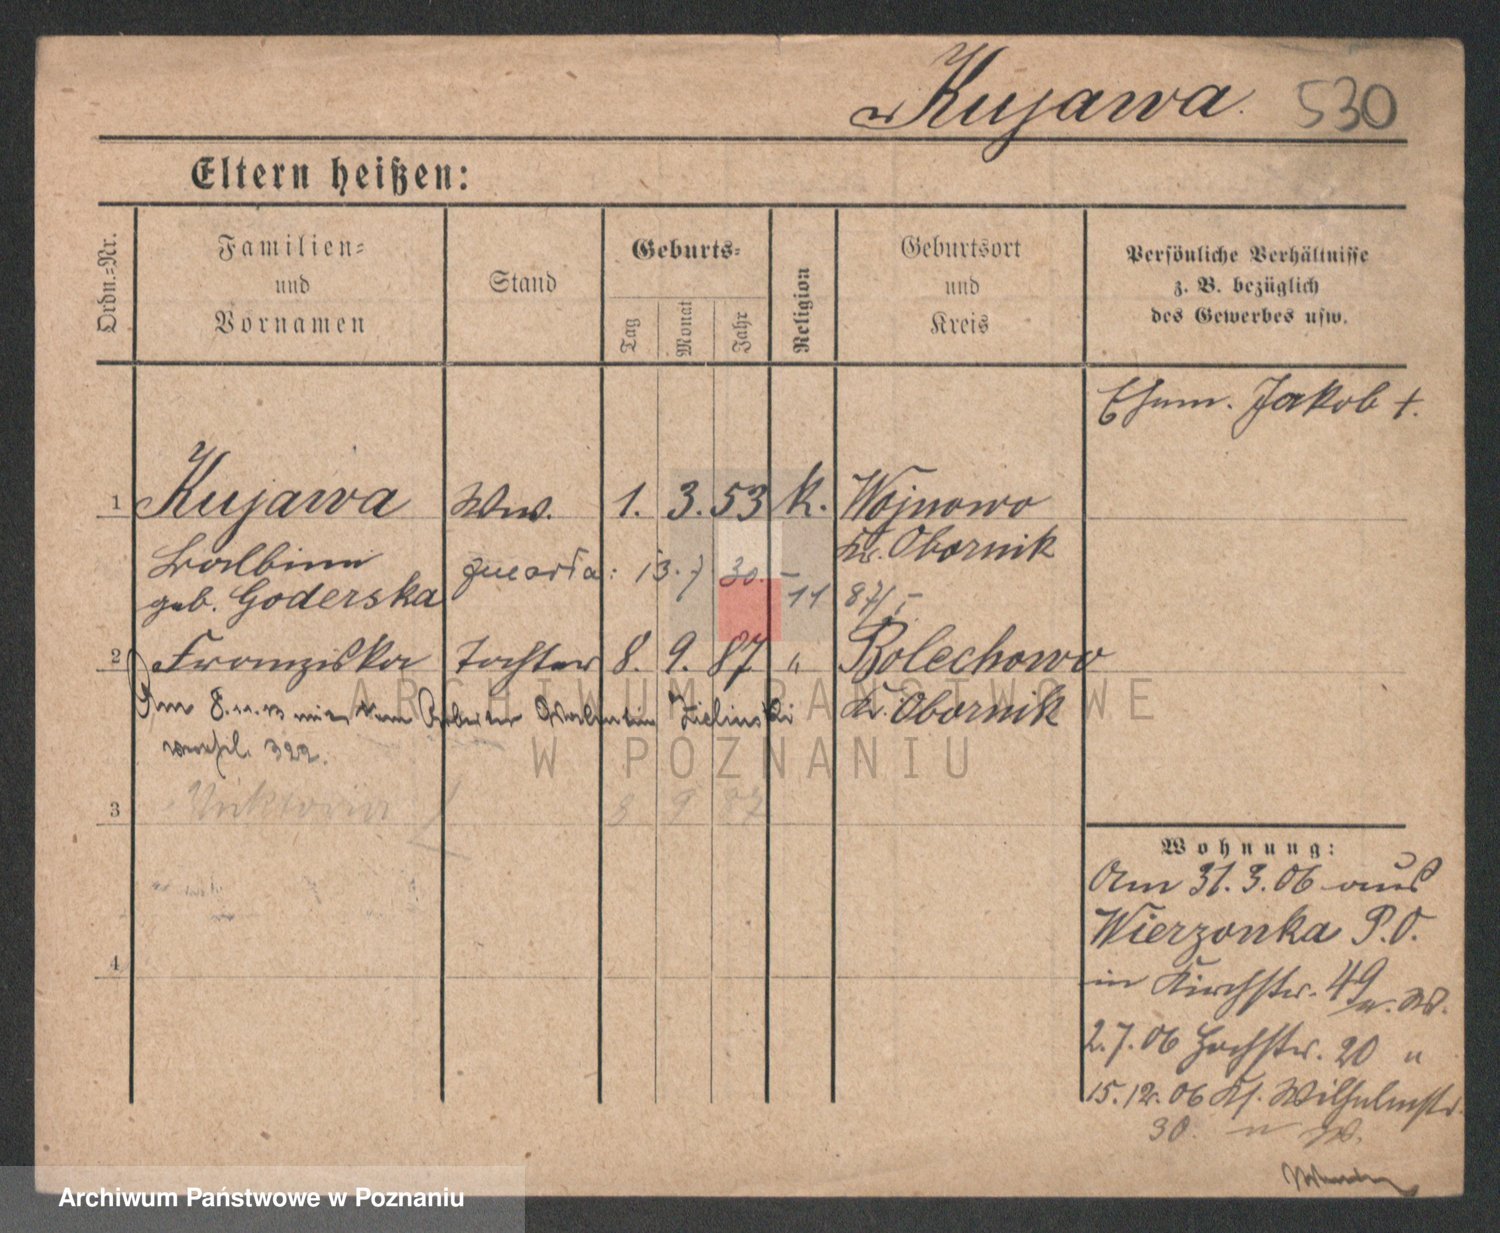 Kujawa. 530
Eltern heißen:
Ordn.-Nr.
Familien-
und
Vornamen
Stand
Geburts-
Tag
Monat
Jahr
Religion
Geburtsort
und
Kreis
Persönliche Verhältnisse
z. B. bezüglich
des Gewerbes usw.
Ehem. Jakob +.
1 Kujawa Ww. 1. 3. 53 K. Wojnowo
Balbina Kr. Obornik
geb. Goderska
2 Franziska Tochter 8. 9. 87 " Bolechowo
Am 8.11.13 mit dem Arbeiter Valentin Zielinski Kr. Obornik
verehel. 322.
3 Viktoria 8 9 87
4
Wohnung:
Am 31.3.06 aus
Wierzonka P.O.
in Kirchstr. 49
2.7.06 Hochstr. 20 "
15.12.06 Kl. Wilhelmstr.
30.
ARCHIWUM PAŃSTWOWE
W POZNANIU
Archiwum Państwowe w Poznaniu